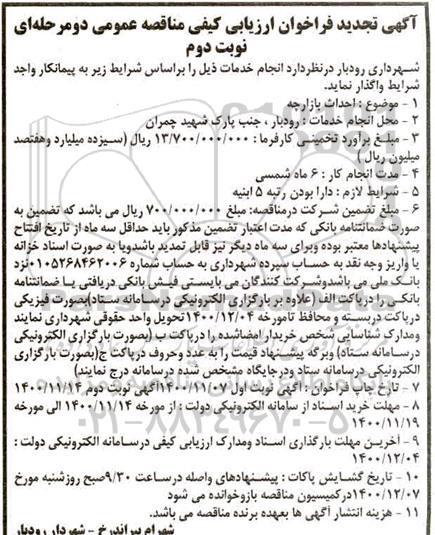 آگهی تجدید فراخوان ارزیابی کیفی مناقصه عمومی دومرحله‌ای
نوبت دوم
شهرداری رودبار درنظردارد انجام خدمات ذیل را براساس شرایط زیر به پیمانکار واجد
شرایط واگذار نماید.
۱ - موضوع : احداث بازارچه
۲ - محل انجام خدمات : رودبار ، جنب پارک شهید چمران
۳ - مبلغ برآورد تخمینی کارفرما : ۱۳/۷۰۰/۰۰۰/۰۰۰ ریال (سیزده میلیارد وهفتصد
میلیون ریال)
۴ - مدت انجام کار : ۶ ماه شمسی
۵ - شرایط لازم : دارا بودن رتبه ۵ ابنیه
۶ - مبلغ تضمین شرکت درمناقصه: مبلغ ۷۰۰/۰۰۰/۰۰۰ ریال می باشد که تضمین به
صورت ضمانتنامه بانکی که مدت اعتبار تضمین مذکور باید حداقل سه ماه از تاریخ افتتاح
پیشنهادها معتبر بوده وبرای سه ماه دیگر نیز قابل تمدید باشدویا به صورت اسناد خزانه
یا واریز وجه نقد به حساب سپرده شهرداری به حساب شماره ۰۱۰۵۲۶۸۴۶۲۰۰۶نزد
بانک ملی می باشدوشرکت کنندگان می بایستی فیش بانکی دریافتی یا ضمانتنامه
بانکی را درپاکت الف (علاوه بر بارگزاری الکترونیکی درسامانه ستاد)بصورت فیزیکی
درپاکت دربسته و محافظ تامورخه ۱۴۰۰/۱۲/۰۴تحویل واحد حقوقی شهرداری نمایند
ومدارک شناسایی شخص خریدار امضاشده را درپاکت ب (بصورت بارگزاری الکترونیکی
درسامانه ستاد) وبرگه پیشنهاد قیمت را به عدد وحروف درپاکت ج(بصورت بارگزاری
الکترونیکی درسامانه ستاد ودرجایگاه مشخص شده درسامانه درج نمایند)
۷ - تارخ چاپ فراخوان : آگهی نوبت اول ۱۴۰۰/۱۱/۰۷آگهی نوبت دوم ۱۴۰۰/۱۱/۱۴
۸ - مهلت خرید اسناد از سامانه الکترونیکی دولت : از مورخه ۱۴۰۰/۱۱/۱۴ الی مورخه
۱۴۰۰/۱۱/۱۹
۹ - آخرین مهلت بارگذاری اسناد ومدارک ارزیابی کیفی درسامانه الکترونیکی دولت :
۱۴۰۰/۱۲/۰۴
۱۰ - تاریخ گشایش پاکات : پیشنهادهای واصله درساعت ۹/۳۰صبح روزشنبه مورخ
۱۴۰۰/۱۲/۰۷درکمیسیون مناقصه بازوخوانده می شود
۱۱ - هزینه انتشار آگهی ها بعهده برنده مناقصه می باشد.
شهرام پیراندرخ - شهردار رودبار
۰۲۱-۸۸۳۴۹۶۷۰-۵